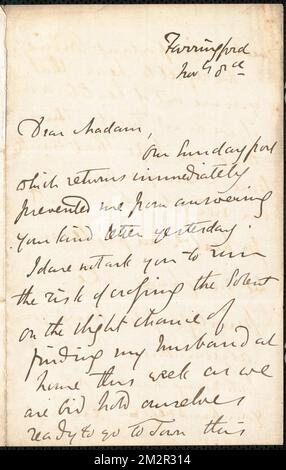 Farringford
Nov 8th
Dear Madam,
Our Sunday post
which returns immediately
prevented me from answering
your kind letter yesterday.
I dare not ask you to run
the risk of crossing the Solent
on the slight chance of
finding my husband at
home this week as we
are bid hold ourselves
ready to go to Town this
alamy
Image ID: 2M2R314
www.alamy.com